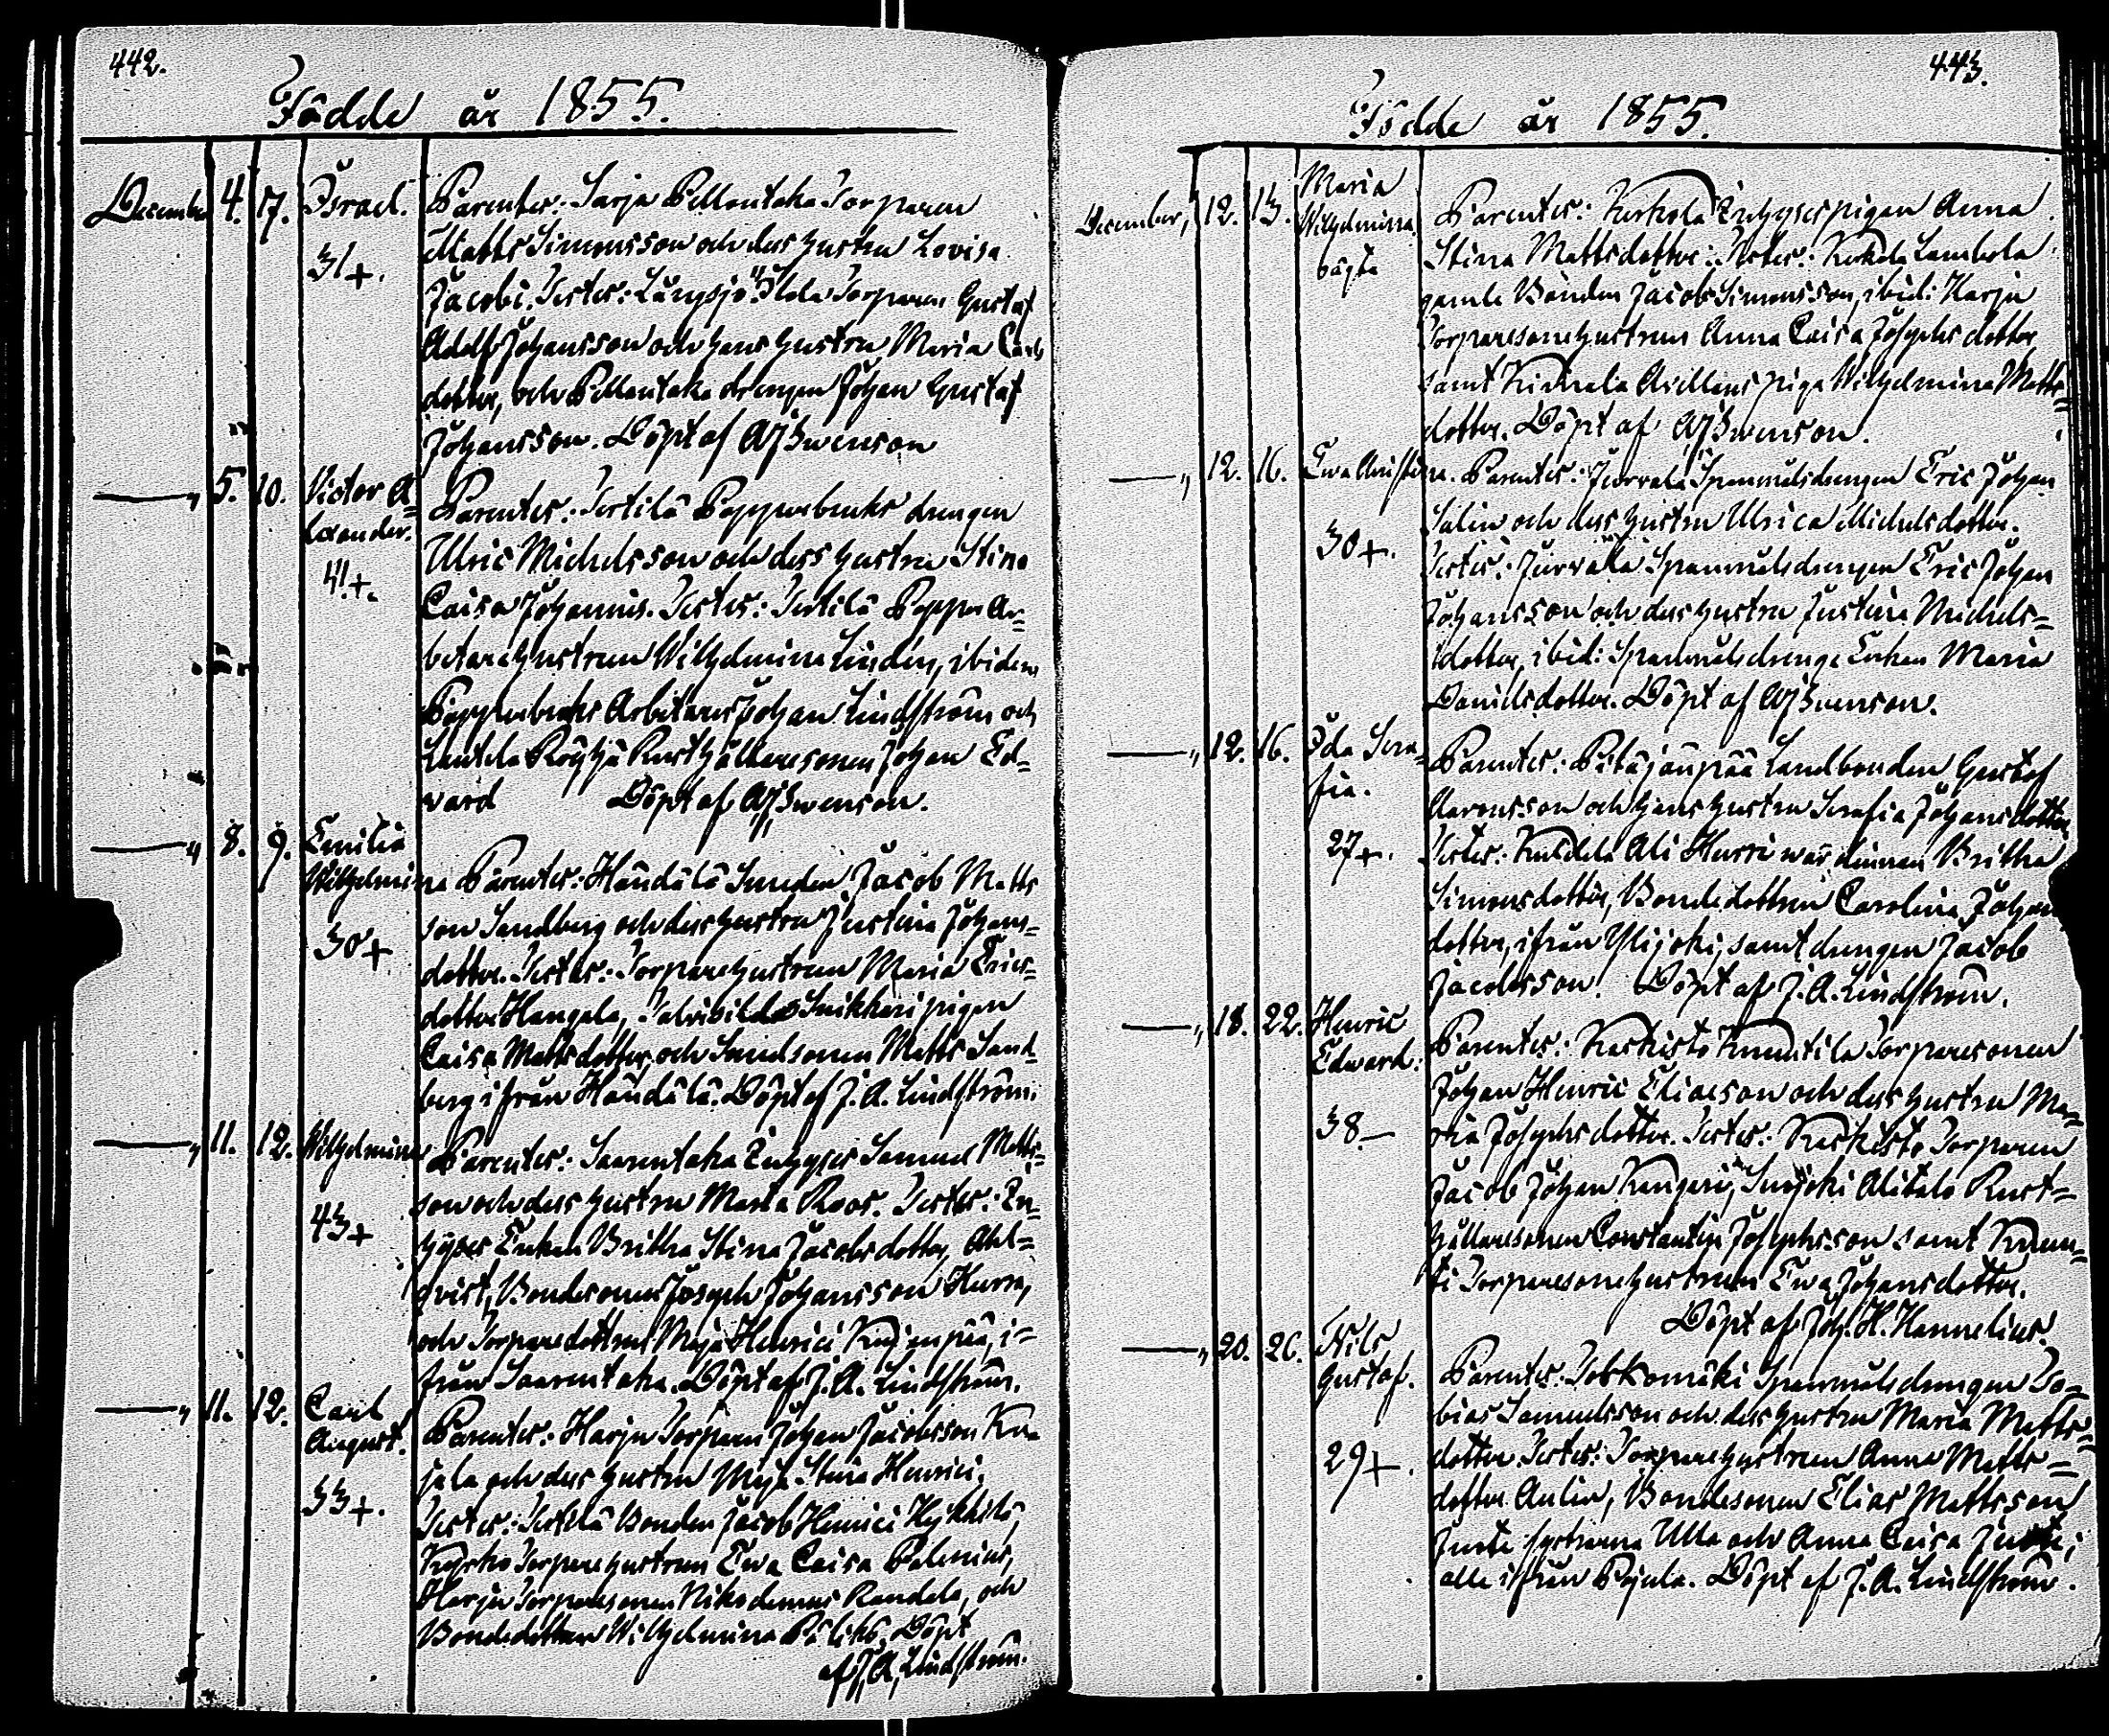 442.
Födde år 1855.
December 4. 17. Israel. Parenter: Sarja Pellontaka Torparen
Matts Simonsson och dess hustru Lovisa
31+. Jacobi. Testes: Långsjö Torparen Gustaf
Adolf Johansson och hans hustru Maria Carls
dotter, och Pellontaka drengen Johan Gustaf
Johansson. Döpt af AJSwenson
—„ 5. 10. Victor A= Parenter: Tertilä Pappersbruks drengen
lexander. Ulric Michelsson och dess hustru Stina
41+. Caisa Johannis. Testes: Tertilä Pappers Ar=
betarehustrun Wilhelmina Linden, ibidem
Pappersbruks Arbetaren Johan Lindström och
Rusthållaresonen Johan Ed=
vard Döpt af AJSwenson.
—„ 8. 9. Emilia
Wilhelmina Parenter: Händälä Smeden Jacob Matts
son Sandberg och dess hustru Justina Johans=
30+ dotter. Testes: Torparehustrun Maria Erics=
dotter Hangala, Snikkari pigan
Caisa Mattsdotter, och Smedsonen Matts Sand=
berg ifrån Händälä. Döpt af J. A. Lindström.
—„ 11. 12. Wilhelmina Parenter: Saarentaka Inhyses Samuel Matts=
son och dess hustru Maria Roos. Testes: In=
43+ hyses Enkan Britha Stina Jacobsdotter Ahl=
qvist, Bondesonen Joseph Johansson Hurra,
och Torparedottren Maja Henrici i=
från Saarentaka. Döpt af J. A. Lindström.
—„ 11. 12. Carl
August. Parenter: Harju Torparen Johan Jacobsson Ku=
jala och dess hustru Maja Stina Henrici.
33+. Testes: Tertilä Bonden Jacob Henrici Heikkilä,
Torparehustrun Ewa Caisa Palenius,
Harju Torparesonen Nikodemus Randela, och
Bondedottren Wilhelmina Döpt
af J. A. Lindström.
443.
Födde år 1855.
December, 12. 13. Maria
Wilhelmina Parenter: Kerkola Inhysespigan Anna
oägta Stina Mattsdotter. Testes: Kerkola Lambola
gamle Bonden Jacob Simonsson, ibid: Harju
Torparesonehustrun Anna Caisa Josephsdotter
samt piga Wilhelmina Matts=
dotter. Döpt af AJSwenson.
—„ 12. 16. Ewa Christina. Parenter: Jurvala Spanmålsdrengen Eric Johan
Salin och dess hustru Ulrica Michelsdotter.
30+. Testes: Jurvala Spanmålsdrengen Eric Johan
Johansson och dess hustru Justina Michels=
dotter, ibid: Spanmålsdrenge Enkan Maria
Danielsdotter. Döpt af AJSwenson.
—„ 12. 16. Ida Sera=
fia. Parenter: Pitäjänpää Landbonden Gustaf
Aaronsson och hans hustru Serafia Johansdotter
27+. Testes: Ali Hurri wärdinnan Britha
Simonsdotter, Bondedottren Carolina Johans
dotter, ifrån Ylijoki, samt drengen Jacob
Jacobsson. Döpt af J. A. Lindström.
—„ 18. 22. Henric
Edward. Parenter: Kaskisto Knuutila Torparesonen
Johan Henric Eliaeson och dess hustru Ma=
38— ria Josephsdotter. Testes: Kaskisto Torparen
Jacob Johan Kangari, Suojoki Alitalo Rust=
hållaresonen Constantin Josephsson samt Knuu=
ti Torparesonehustrun Ewa Johansdotter.
Döpt af Joh. H. Hannelius.
—„ 20. 26. Nils
Gustaf. Parenter: Spanmålsdrengen To=
bias Samuelsson och dess hustru Maria Matts=
29+. dotter Testes: Torparehustrun Anna Matts=
dotter Aulin, Bondesonen Elias Mattsson
Junti systrarna Ulla och Anna Caisa Junti;
alla ifrån Pajula. Döpt af J. A. Lindström.